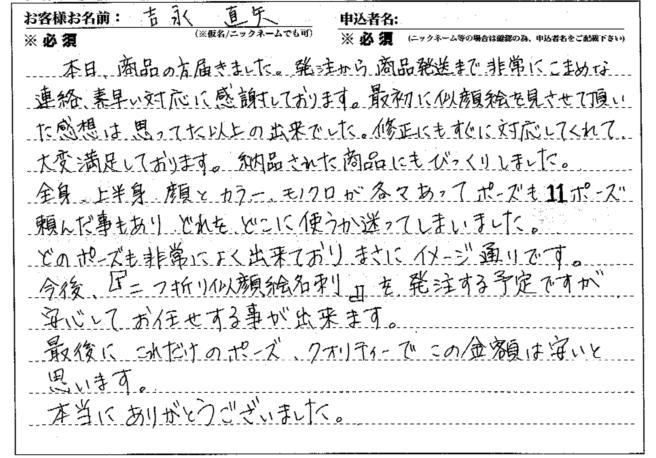 お客様お名前： 吉永 直矢 申込者名：
※ 必 須 （※仮名/ニックネームでも可） ※ 必 須 （ニックネーム等の場合は確認の為、申込者名をご記載下さい）
本日、商品の方届きました。発注から商品発送まで非常にこまめな
連絡、素早い対応に感謝しております。最初に似顔絵を見させて頂い
た感想は思ってた以上の出来でした。修正にもすぐに対応してくれて、
大変満足しております。納品された商品にもびっくりしました。
全身、上半身、顔とカラー、モノクロが各々あってポーズも11ポーズ
頼んだ事もあり、どれを、どこに使うか迷ってしまいました。
どのポーズも非常によく出来ており、まさにイメージ通りです。
今後、『二つ折り似顔絵名刺』を発注する予定ですが、
安心してお任せする事が出来ます。
最後に これだけのポーズ、クオリティーでこの金額は安いと
思います。
本当にありがとうございました。